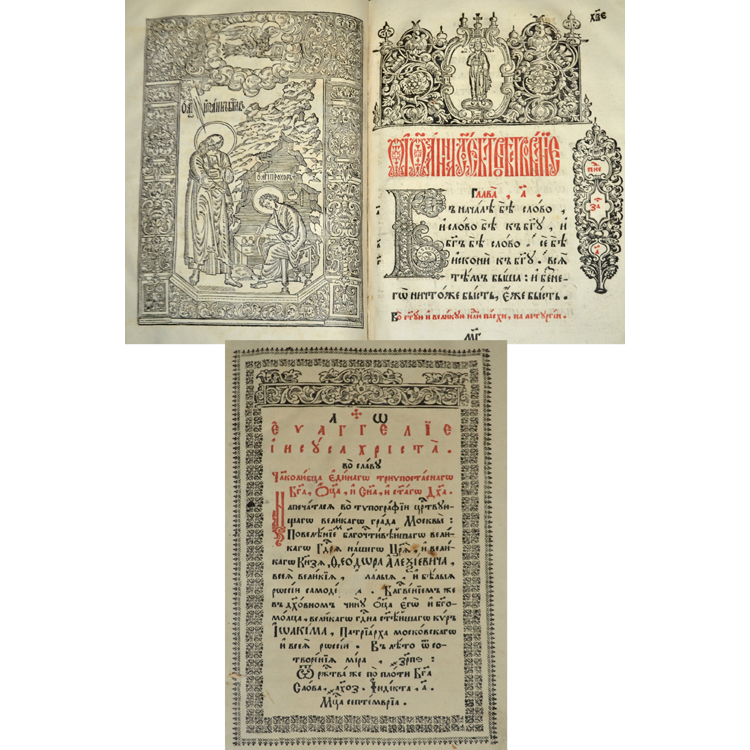 СТ҃Ы ІѠАННЪ БГ҃ОСЛОВЪ
СТ҃ЫЙ ПРОХОРЪ
Глава̀, а҃.
Въ нача́лѣ бѣ̀ сло́во,
и҆ сло́во бѣ̀ къ бг҃ꙋ, и҆
бг҃ъ бѣ̀ сло́во. се́й бѣ̀
и҆сконѝ къ бг҃ꙋ. всѧ̑
тѣ́мъ бы́ша: и҆ без̾ не-
гѡ̀ ничто́же бы́сть, є҆́же бы́сть.
Во ст҃ꙋ́ю и҆ вели́кꙋю нлⷣю па́схи, на лїтꙋргі́и.
А Ѡ
Є҆ѵаггелїе
і҆исꙋса хрїста̀.
во сла́вꙋ
є҆ди́нагѡ трїѷпоста́снагѡ
Бг҃а, Ѻ҆ц҃а̀, и҆ Сн҃а, и҆ ст҃а́гѡ Дх҃а.
Напеча́тасѧ во тѷпогра́фїи ца́рствꙋю-
щагѡ вели́кагѡ гра́да Москвы̀:
Повелѣ́нїемъ бл҃гочти́вѣйшагѡ вели́-
кагѡ Гдⷭ҇рѧ на́шегѡ Цр҃ѧ̀, и҆ вели́-
кагѡ Кнѕ҃ѧ, Ѳео́дѡра А҆леѯі́евича,
всеѧ̀ вели́кїѧ, и҆ ма́лыѧ, и҆ бѣ́лыѧ
рѡссі́и самоде́ржца. Бл҃гослове́нїемъ же
въ дх҃о́вномъ чи́нꙋ ѻ҆ц҃а̀ є҆гѡ̀ и҆ бг҃о-
мо́лца, вели́кагѡ гдⷭ҇и́на ст҃ѣ́йшагѡ кѵ́ръ
І҆ѡаки́ма, Патрїа́рха моско́вскагѡ
и҆ всеѧ̀ рѡссі́и. Въ лѣ́то ѿ со-
творе́нїѧ мі́ра, ҂зрп҃ѳ:
Ѿ ржⷭ҇тва́ же по пло́ти Бг҃а
Сло́ва, ҂ахо҃з. І҆ндї́кта, а҃.
Мцⷭ҇а септе́мврїа.